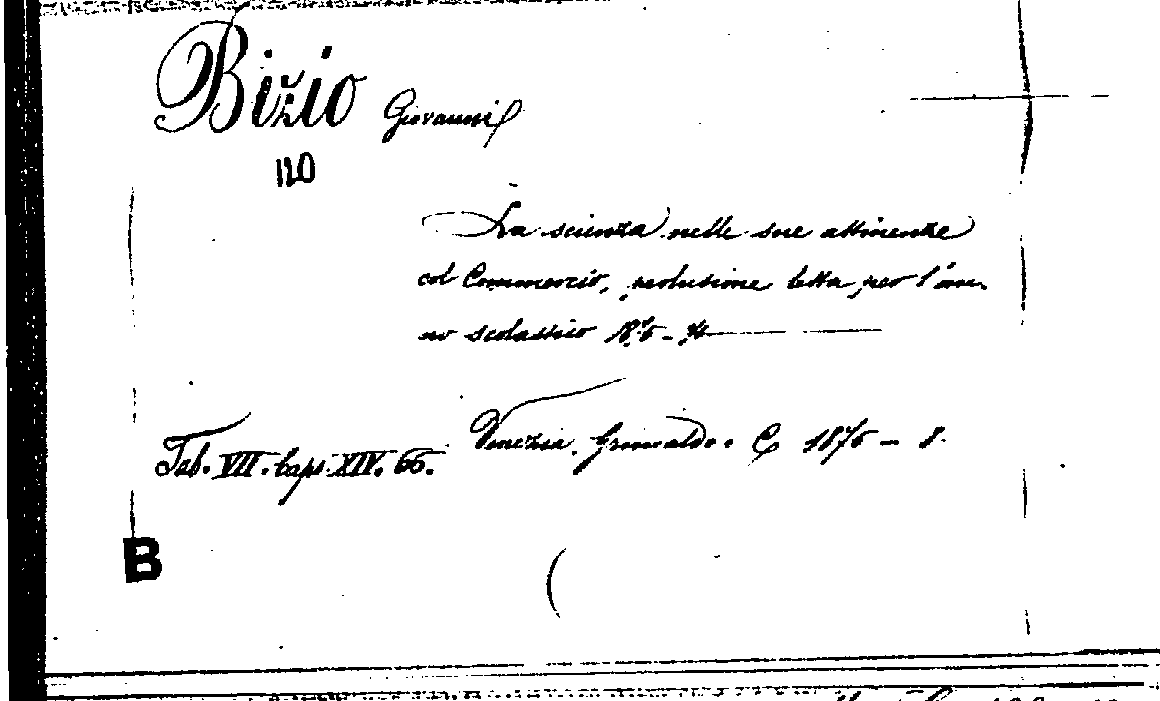 Bizio Giovanni
110
La scienza nelle sue attinenze
col Commercio, prolusione letta per l'an-
no scolastico 1875-76
Venezia. Grimaldo. C 1876 - 8.
Tab. VII. Caps. XIV. 66.
B